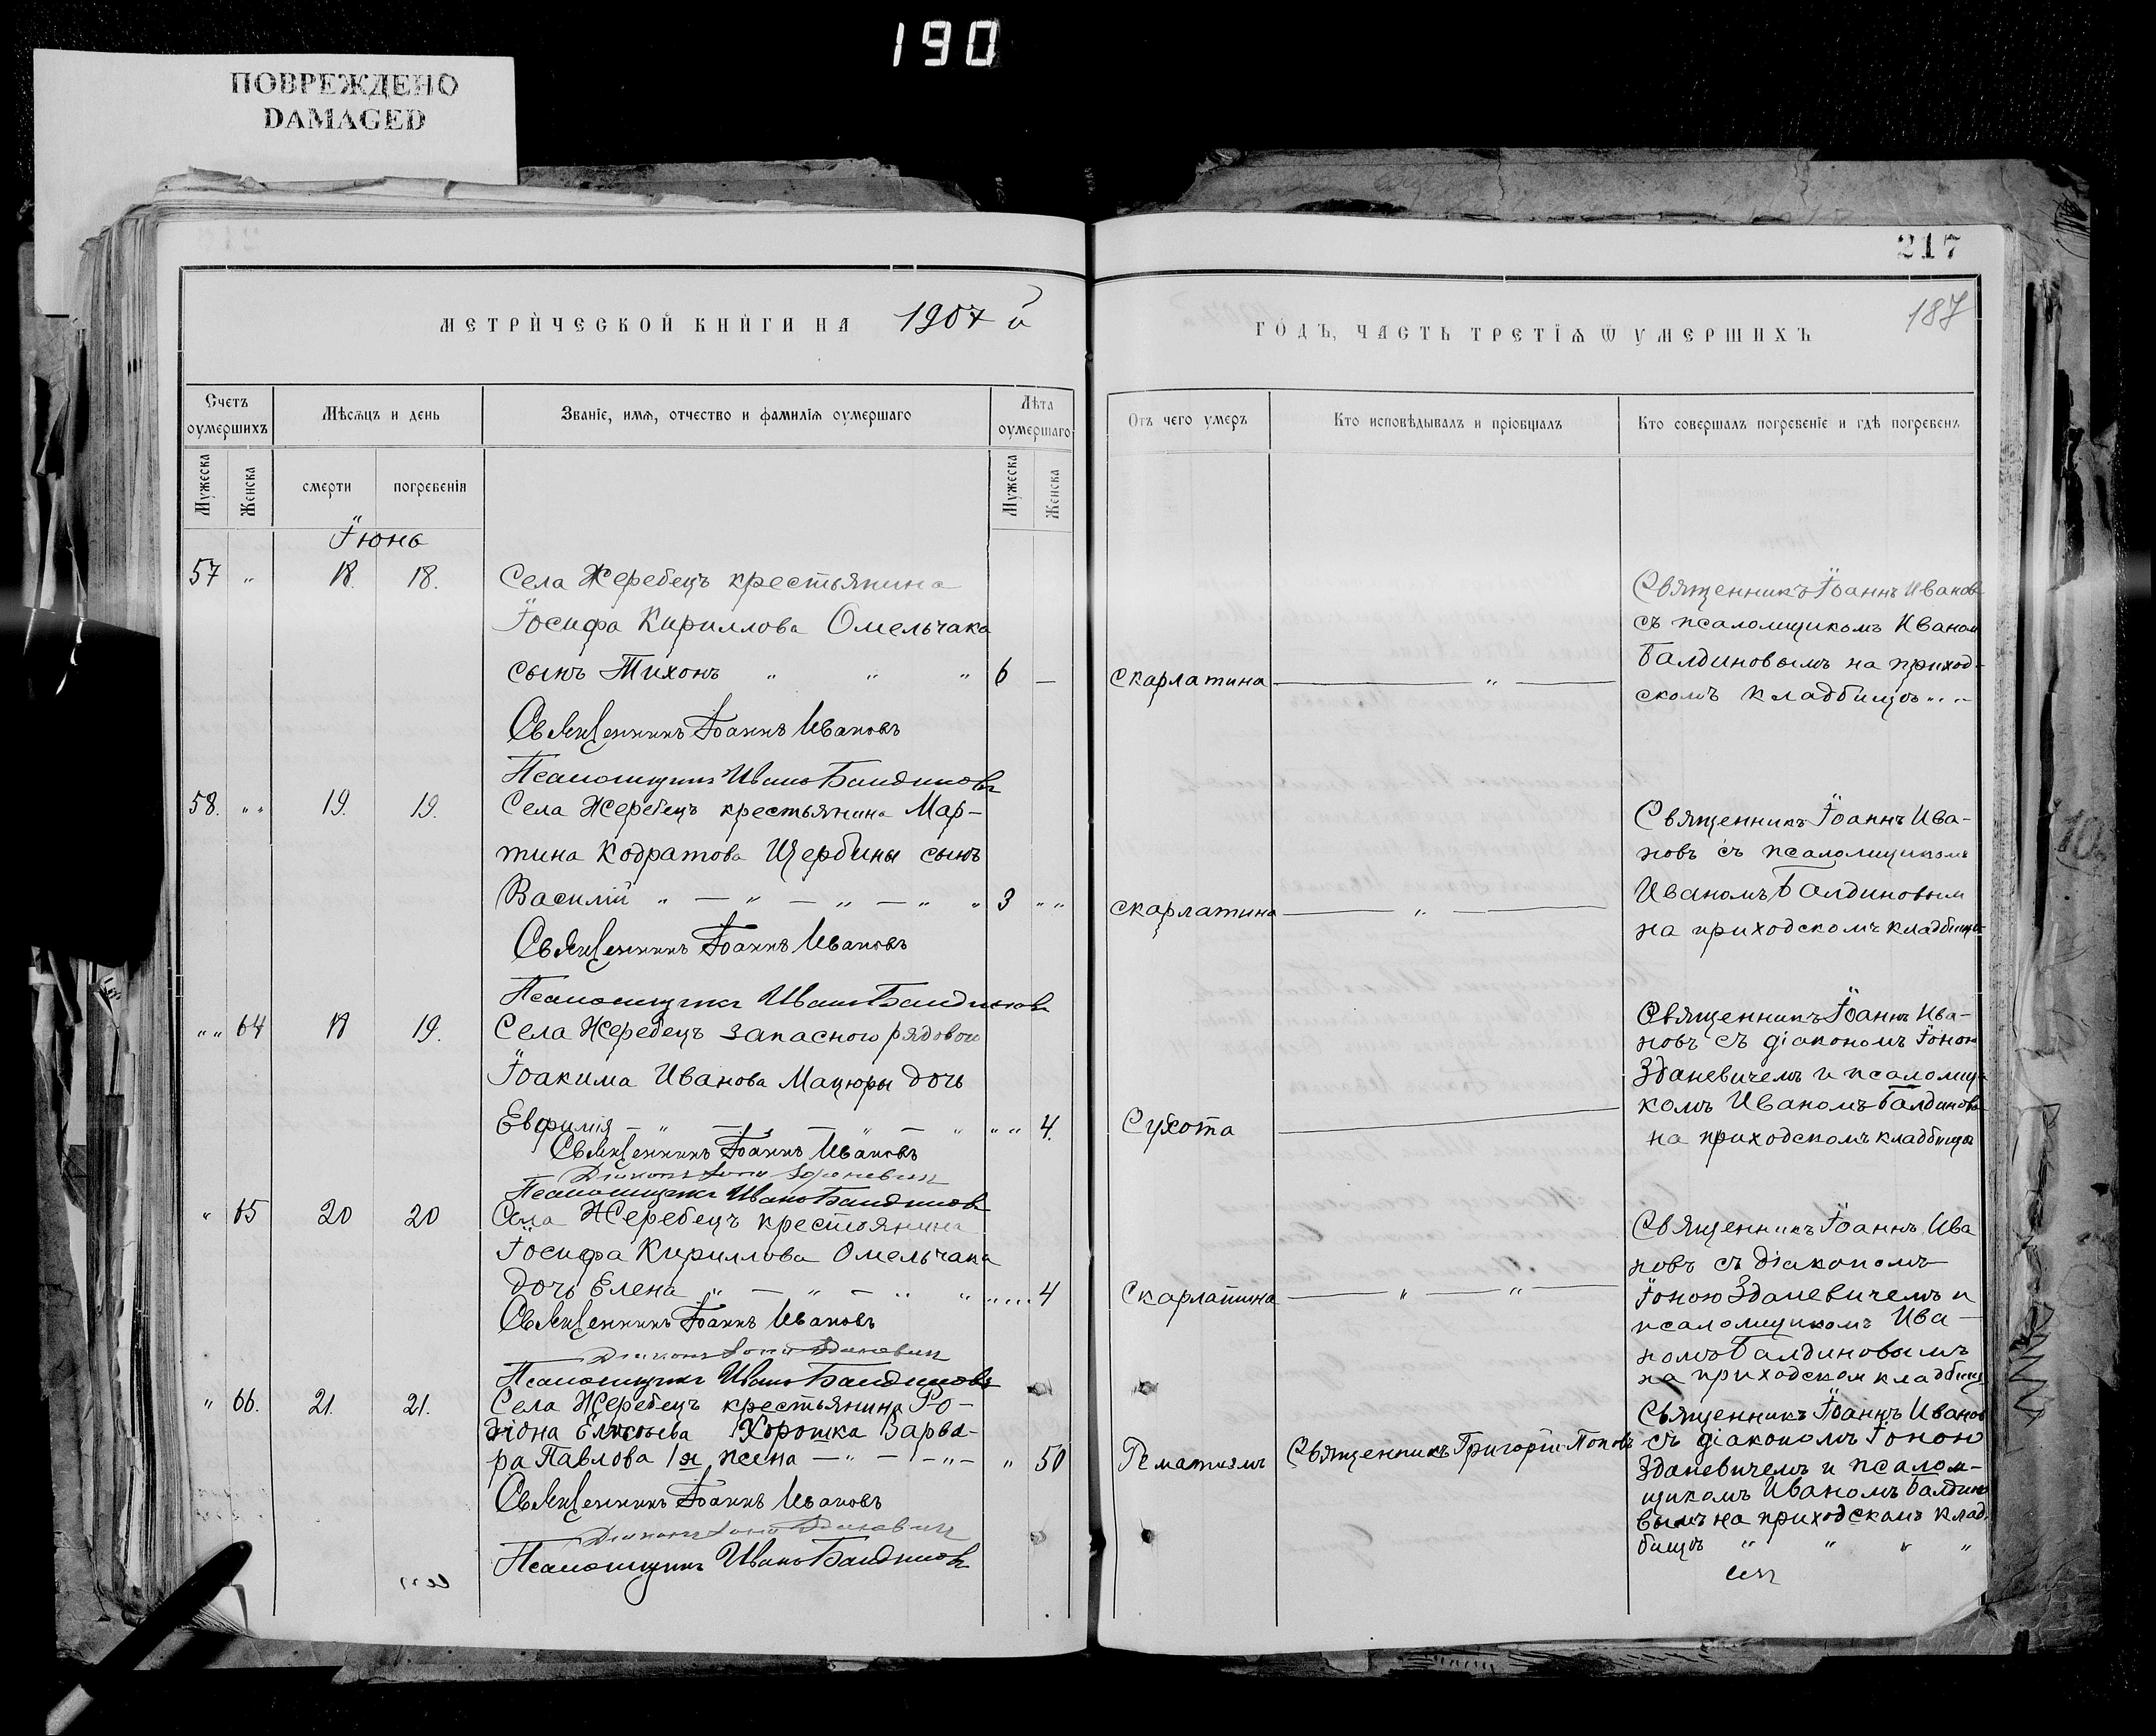 190
ПОВРЕЖДЕНО
DAMAGED
МЕТРИЧЕСКОЙ КНИГИ НА 1907 й
Счетъ оумершихъ
Мѣсяцъ и день
Званіе, имя, отчество и фамилія оумершаго
Лѣта оумершаго
Мужеска
Женска
смерти
погребенія
Мужеска
Женска
Іюнь
57 " 18. 18. Села Жеребецъ крестьянина
Іосифа Кириллова Омельчака
сынъ Тихонъ " " " 6 —
Священникъ Іоаннъ Ивановъ
Псаломщикъ Иванъ Балдиновъ
58. " " 19. 19. Села Жеребецъ крестьянина Мар-
тина Кодратова Щербины сынъ
Василій " — " — " — " " 3 " "
Священникъ Іоаннъ Ивановъ
Псаломщикъ Иванъ Балдиновъ
" " 64 18 19. Села Жеребецъ запасного рядового
Іоакима Иванова Мацюры дочь
Евфимія — " — " — " — " " " 4.
Священникъ Іоаннъ Ивановъ
Діаконъ Іона Зданевичъ
Псаломщикъ Иванъ Балдиновъ
" 65 20 20 Села Жеребецъ крестьянина
Іосифа Кириллова Омельчака
дочь Елена " — " — " " " " 4
Священникъ Іоаннъ Ивановъ
Діаконъ Іона Зданевичъ
Псаломщикъ Иванъ Балдиновъ
" 66. 21. 21. Села Жеребецъ крестьянина Ро-
діона Хорошка Варва-
ра Павлова 1я жена — " — " — " 50
Священникъ Іоаннъ Ивановъ
Діаконъ Іона Зданевичъ
Псаломщикъ Иванъ Балдиновъ
217
187
ГОДЪ, ЧАСТЬ ТРЕТІЯ Ѿ УМЕРШИХЪ
Отъ чего умеръ
Кто исповѣдывалъ и пріобщалъ
Кто совершалъ погребеніе и гдѣ погребенъ
Священникъ Іоаннъ Ивановъ
съ псаломщикомъ Иваном
Балдиновымъ на приход-
скомъ кладбищѣ " "
скарлатина — " —
Священникъ Іоаннъ Ива-
новъ съ псаломщикомъ
Иваномъ Балдиновым
на приходскомъ кладбищѣ
скарлатина — " —
Священникъ Іоаннъ Ива-
новъ съ діакономъ Іоною
Зданевичемъ и псаломщи-
комъ Иваномъ Балдиновы
на приходскомъ кладбищѣ
Сухота —
Священникъ Іоаннъ Ива
новъ съ діакономъ
Скарлатина — " — " — Іоною Зданевичемъ и
псаломщикомъ Ива-
номъ Балдиновымъ
на приходском кладбищ
Священникъ Іоаннъ Иванов
Рематизмъ Священникъ Григорій Поповъ съ діакономъ Іоною
Зданевичемъ и псалом-
щикомъ Иваномъ Балдино
вымъ на приходскомъ клад
бищѣ " " " "